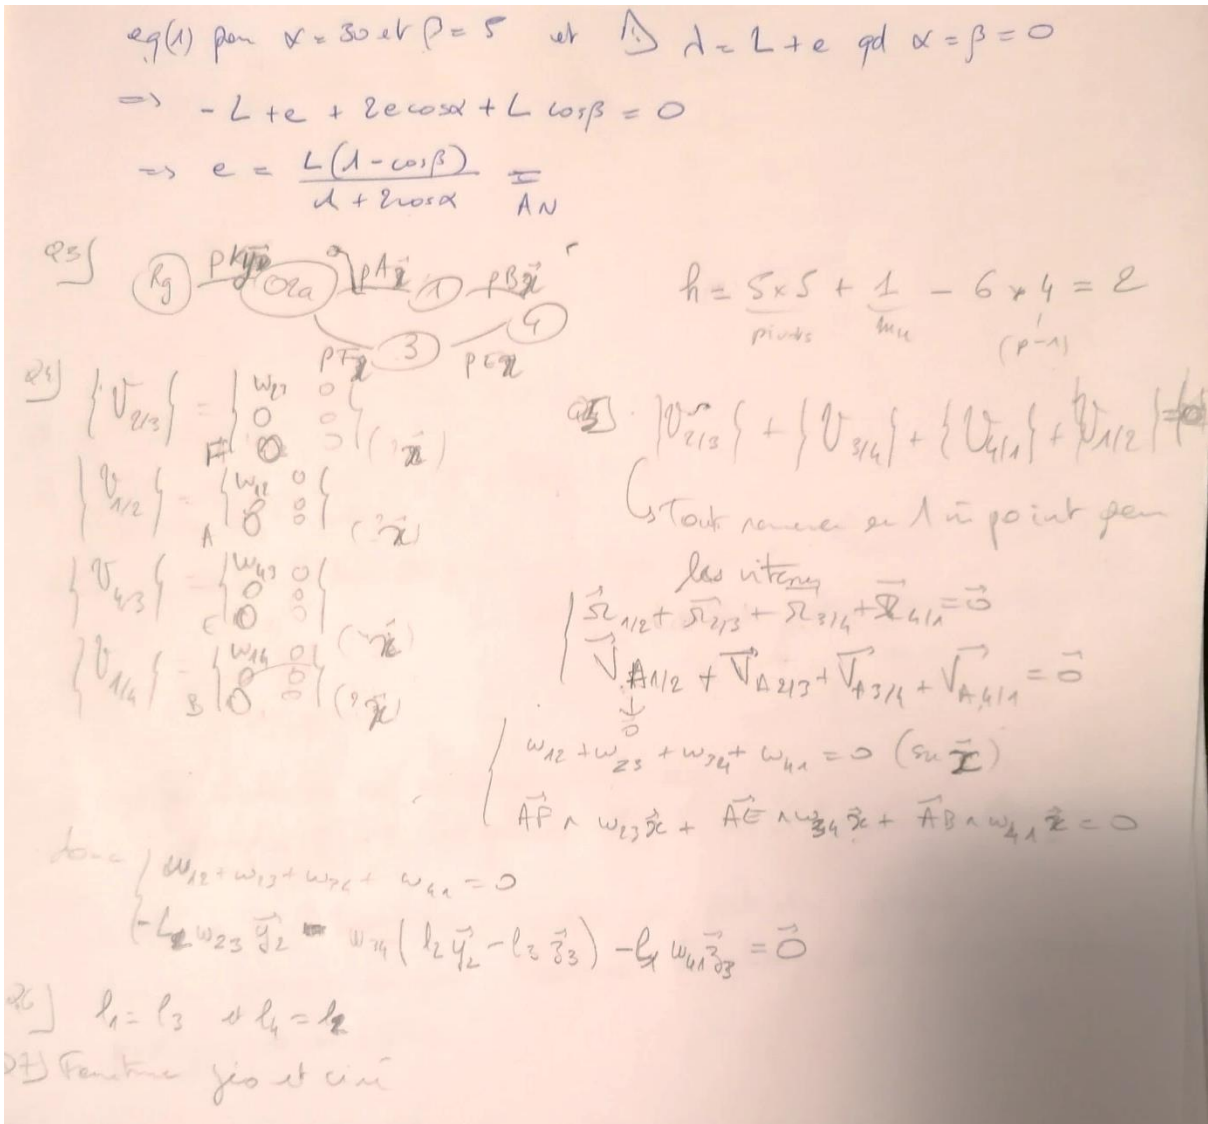 eq(1) pour α = 30 et β = 5 et ⚠ λ = L + e qd α = β = 0
=> - L + e + 2e cosα + L cosβ = 0
=> e = L(1 - cosβ) / (1 + 2cosα) = AN
Q3] Rg 02a pA x⃗ 1 pB x⃗ 4 3 pE x⃗
h = 5 x 5 + 1 - 6 x 4 = 2
pivots mu (p-1)
Q4] {V 2/3} = F { w23 0 0 0 0 0 } (?, x⃗)
{V 1/2} = A { w12 0 0 0 0 0 } (?, x⃗)
{V 4/3} = E { w43 0 0 0 0 0 } (x⃗)
{V 1/4} = B { w14 0 0 0 0 0 } (?, x⃗)
Q5] {V 2/3} + {V 3/4} + {V 4/1} + {V 1/2} = {0}
↳ Tout ramener en 1 m̂ point pour
les vitesses
Ω⃗ 1/2 + Ω⃗ 2/3 + Ω⃗ 3/4 + Ω⃗ 4/1 = 0⃗
V⃗ A 1/2 + V⃗ A 2/3 + V⃗ A 3/4 + V⃗ A, 4/1 = 0⃗
↓
0⃗
w12 + w23 + w34 + w41 = 0 (sur x⃗)
AF⃗ ∧ w23 x⃗ + AE⃗ ∧ w34 x⃗ + AB⃗ ∧ w41 x⃗ = 0
donc w12 + w23 + w34 + w41 = 0
-L2 w23 y⃗2 - w34 (l2 y⃗2 - l3 z⃗3) - l1 w41 z⃗3 = 0⃗
Q6] l1 = l3 et l4 = l2
Q7] géo et